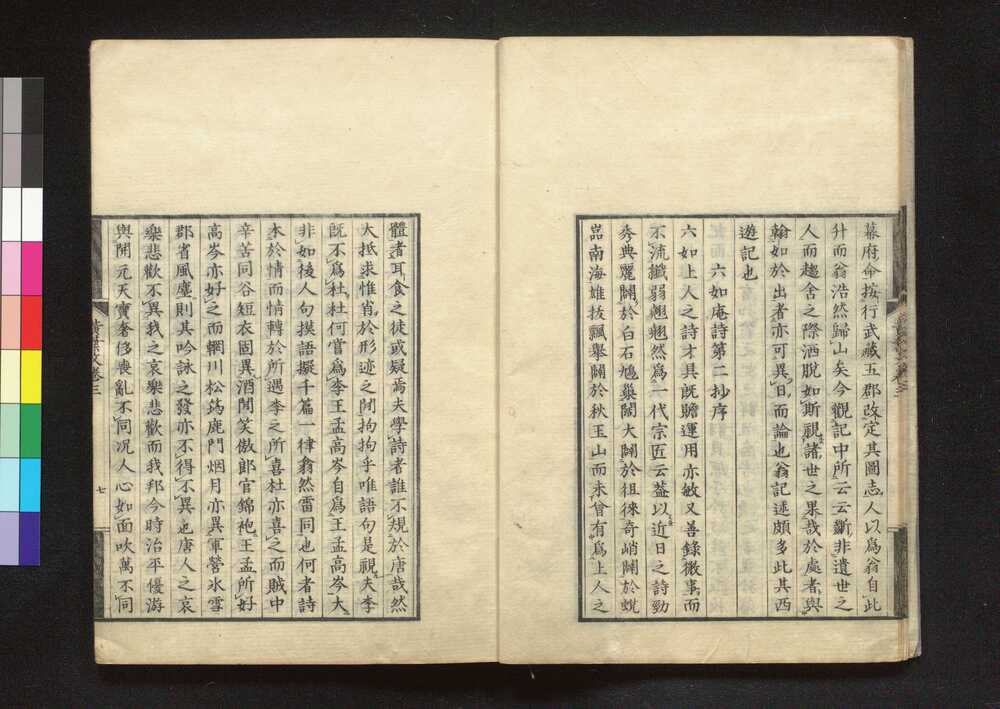 幕府命按行武藏五郡改定其圖志人以爲翁自此
升而翁浩然歸山矣今觀記中所云云斷非遺世之
人而趨舍之際洒脫如斯視諸世之果哉於處者與
翰如於出者亦可異日而論也翁記述頗多此其西
遊記也
六如庵詩第二抄序
六如上人之詩才具既贍運用亦敏又善錄微事而
不流纖弱翹翹然爲一代宗匠云蓋以近日之詩勁
秀典麗闢於白石鳩巢閎大闢於徂徠奇峭闢於蛻
嵓南海雄拔飄舉闢於秋玉山而未曾有爲上人之
體者耳食之徒或疑焉夫學詩者誰不規於唐哉然
大抵求惟肖於形迹之閒拘拘乎唯語句是視夫李
既不爲杜杜何嘗爲李王孟高岑自爲王孟高岑大
非如後人句摸語擬千篇一律翕然雷同也何者詩
本於情而情轉於所遇李之所喜杜亦喜之而賊中
辛苦同谷短衣固異酒閒笑傲郎官錦袍王孟所好
高岑亦好之而輞川松筠鹿門烟月亦異軍營氷雪
郡省風塵則其吟詠之發亦不得不異也唐人之哀
樂悲歡不異我之哀樂悲歡而我邦今時治平優游
與開元天寶奢侈喪亂不同况人心如面吹萬不同
黄葉文卷三
七